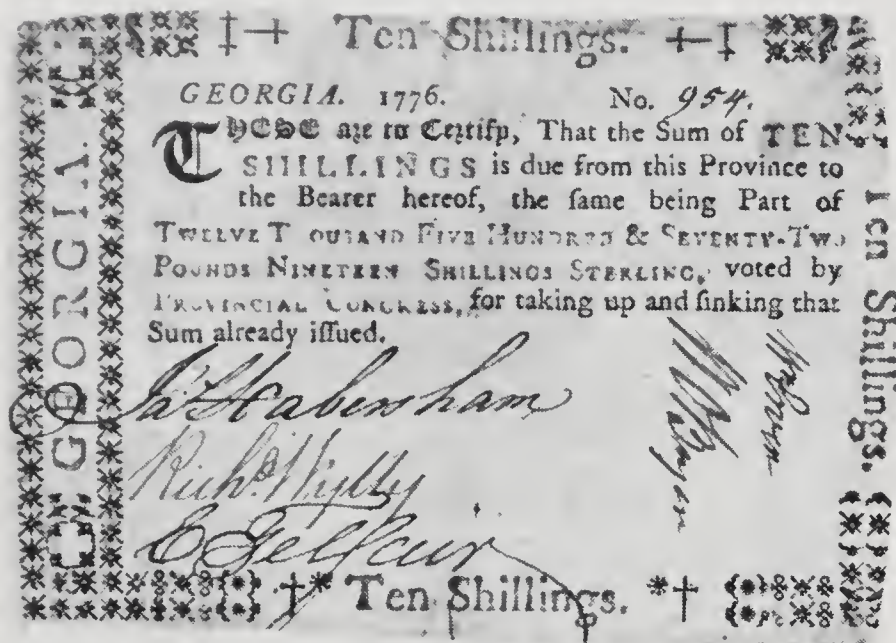 Ten Shillings.
GEORGIA. 1776. No. 954.
THESE are to Certify, That the Sum of TEN
SHILLINGS is due from this Province to
the Bearer hereof, the ſame being Part of
TWELVE T OUSAND FIVE HUNDRED & SEVENTY-TWO
POUNDS NINETEEN SHILLINGS STERLING, voted by
PROVINCIAL CONGRESS, for taking up and ſinking that
Sum already iſſued.
Jas Habersham
Richd. Wylly
E Telfair
Ten Shillings.
GEORGIA.
Ten Shillings.